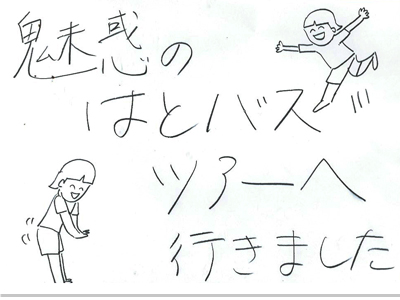 魅惑の
はとバス
ツアーへ
行きました